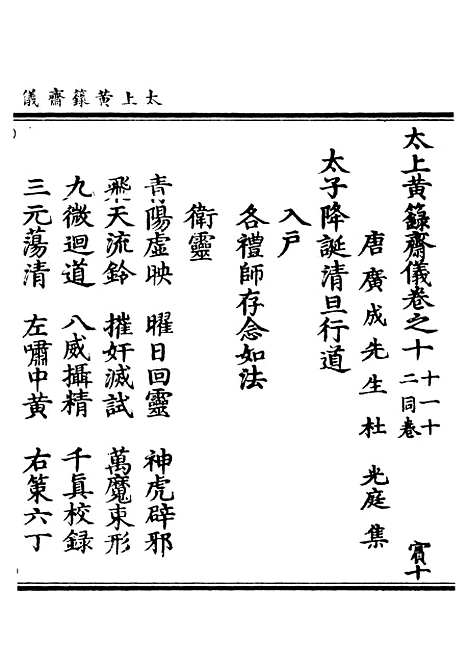 太上黄籙齋儀
太上黄籙齋儀卷之十 十一十二同卷 賓十
唐廣成先生杜光庭集
太子降誕清旦行道
入戶
各禮師存念如法
衛靈
青陽虚映 曜日回靈 神虎辟邪
飛天流鈴 摧奸滅試 萬魔束形
九微迴道 八威攝精 千真校録
三元蕩清 左嘯中黄 右策六丁